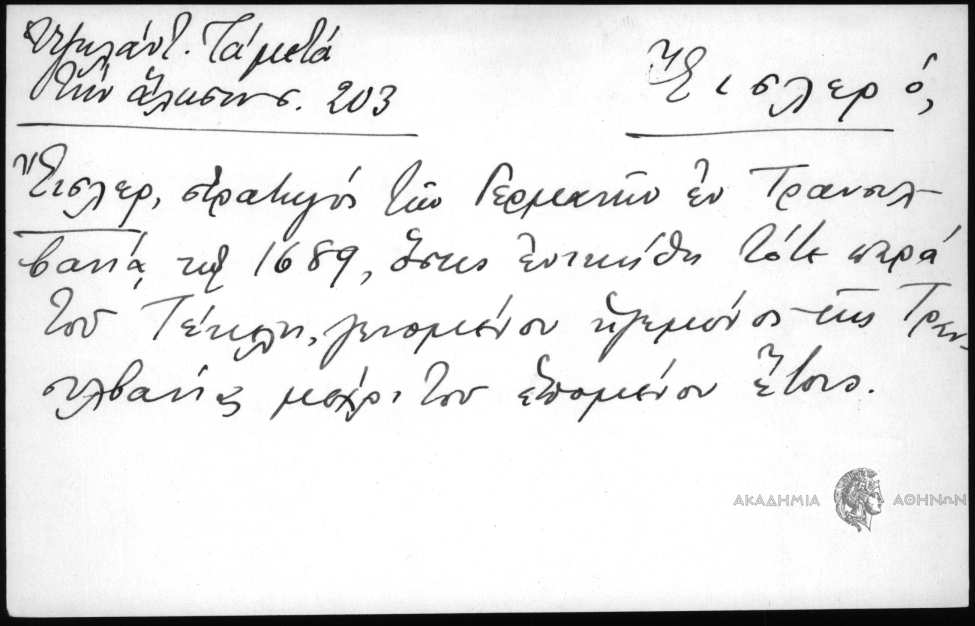 Ὑψηλάντ. Τὰ μετὰ
τὴν ἅλωσιν σ. 203
Ἔισλερ ὁ,
Ἔισλερ, στρατηγὸς τῶν Γερμανῶν ἐν Τρανσυλ-
βανίᾳ τῷ 1689, ὅστις ἐνικήθη τότε παρὰ
τοῦ Τέκελη, γενομένου ἡγεμόνος τῆς Τραν-
συλβανίας μέχρι τοῦ ἑπομένου ἔτους.
ΑΚΑΔΗΜΙΑ ΑΘΗΝΩΝ